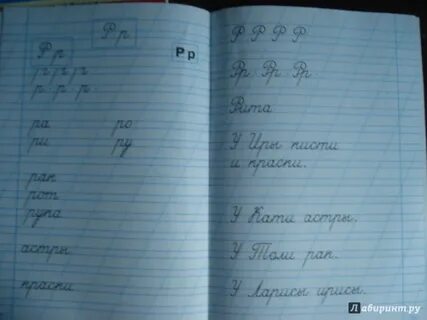 Рр
Рр
Рр
р р р
р р р
ра ро
ри ру
рак
рот
рука
астры
краски
Р Р Р Р
Рр Рр Рр
Рита
У Иры кисти
и краски.
У Кати астры.
У Толи рак.
У Ларисы ирисы.
Лабиринт.ру